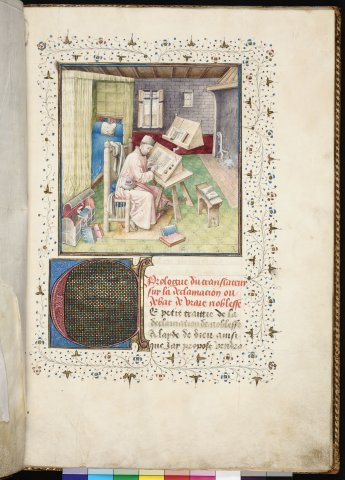 Prologue du translateur
sur la declamacion ou
debat de vraie noblesse
Ce petit traittie de la
declamation de noblesse
a layde de dieu ainsi
que Jay propose